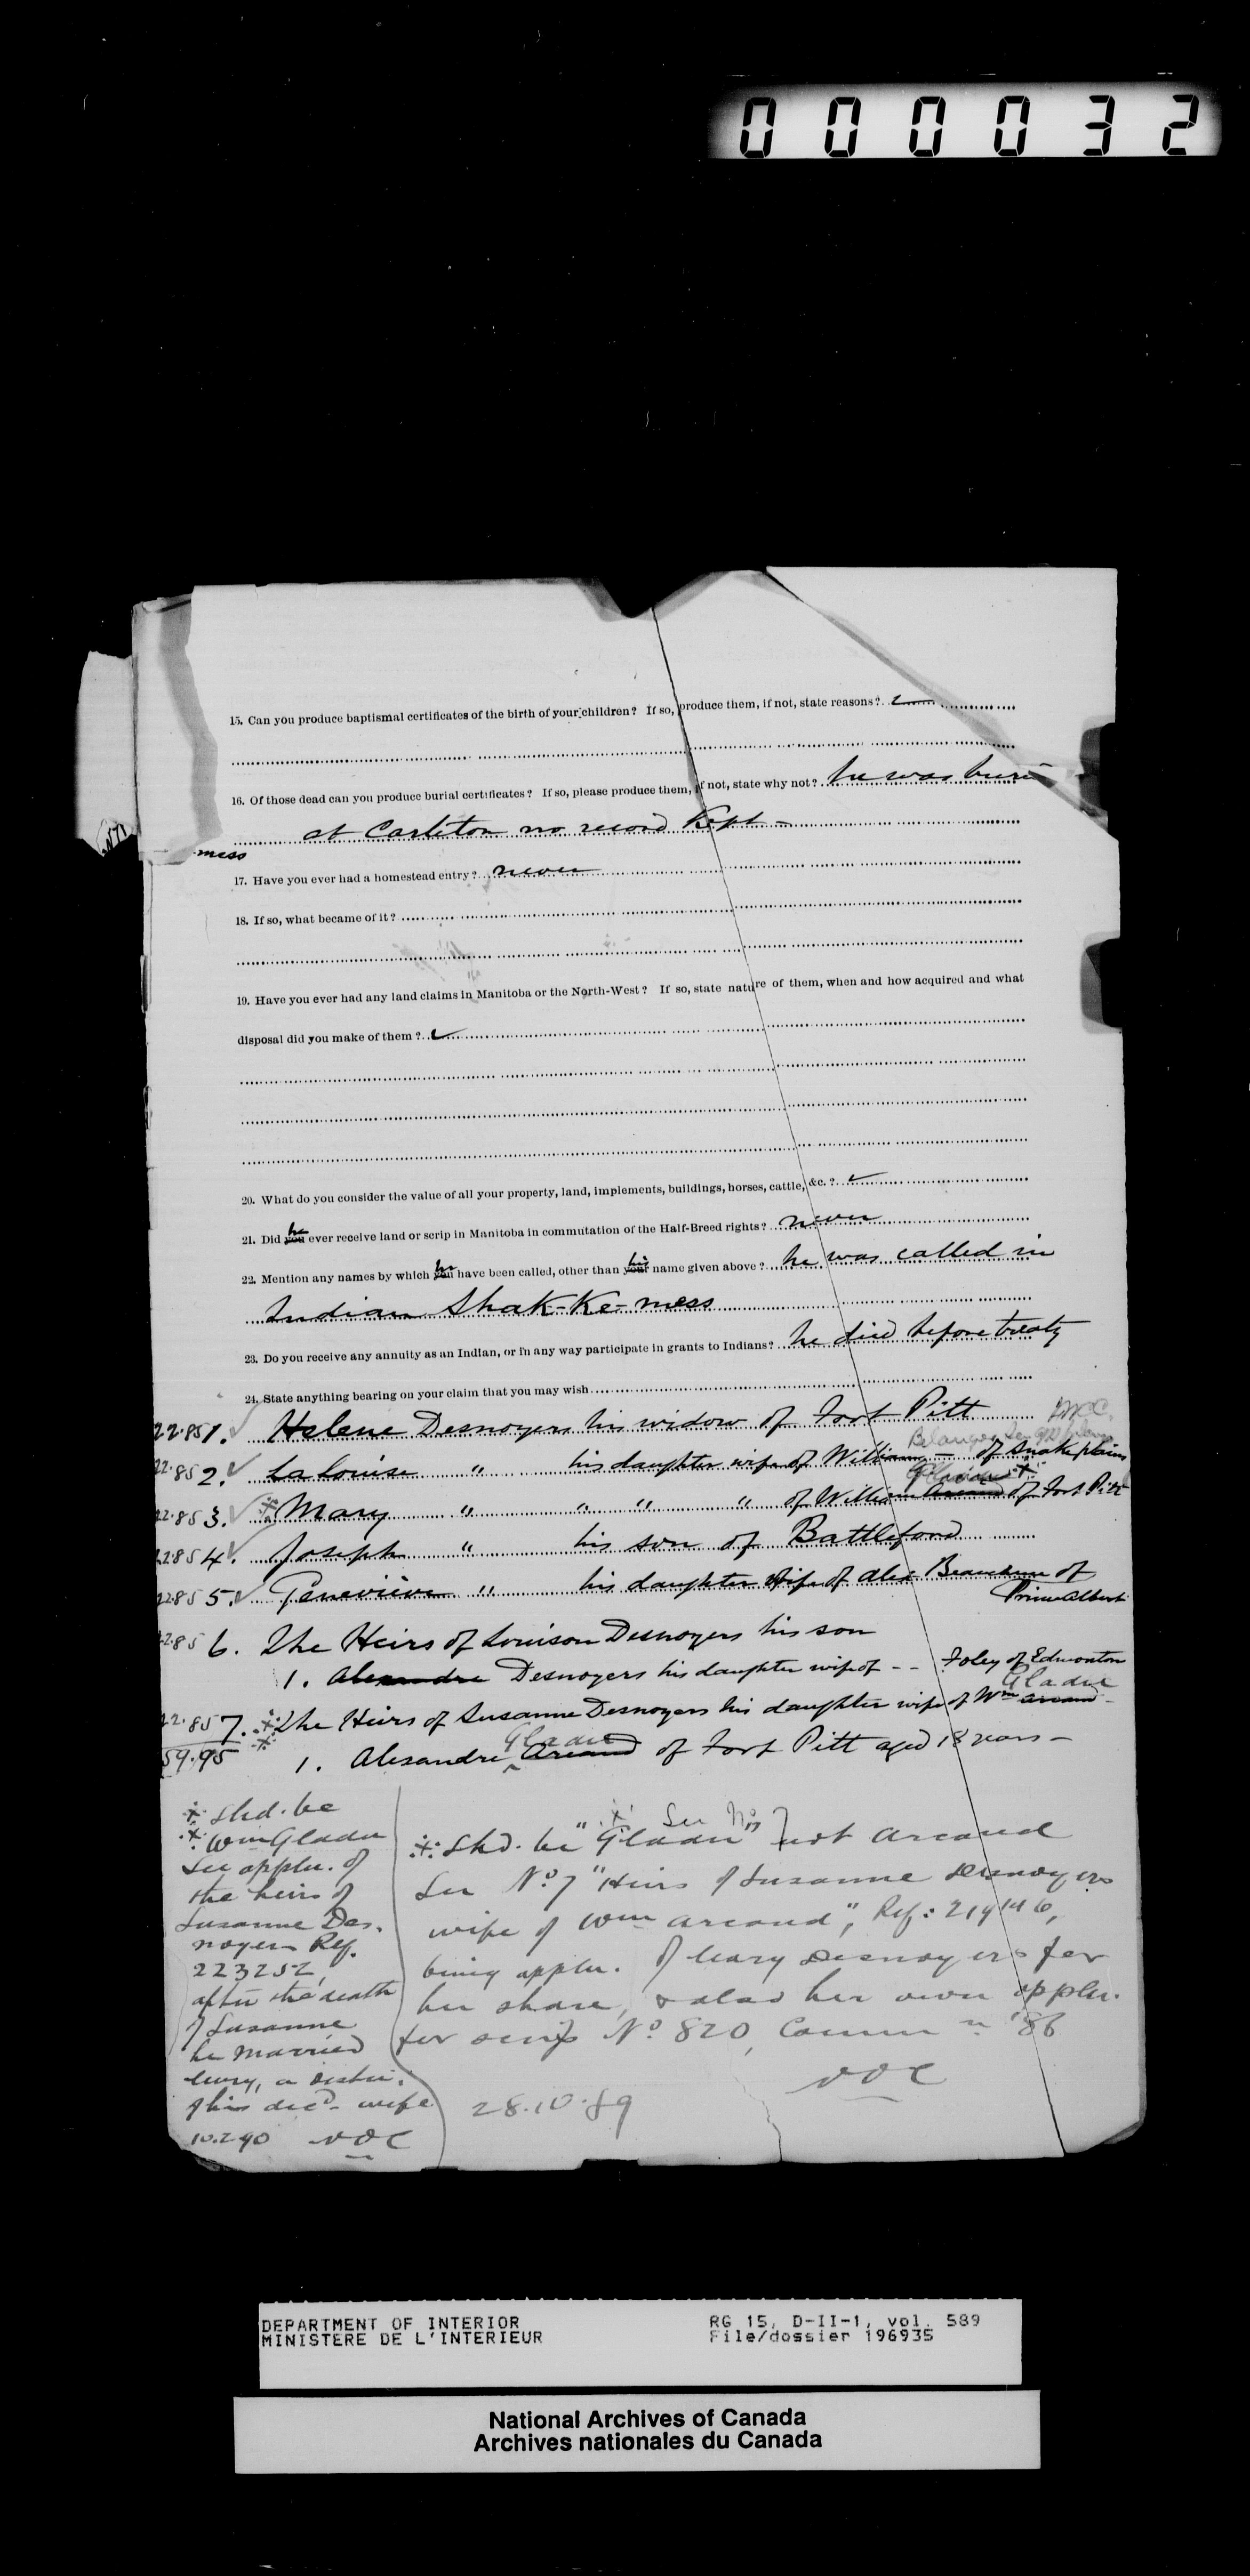 000032
15. Can you produce baptismal certificates of the birth of your children? If so, produce them, if not, state reasons?
16. Of those dead can you produce burial certificates? If so, please produce them, if not, state why not? he was buri
at Carleton no record kept -
mess
17. Have you ever had a homestead entry? never
18. If so, what became of it?
19. Have you ever had any land claims in Manitoba or the North-West? If so, state nature of them, when and how acquired and what
disposal did you make of them?
20. What do you consider the value of all your property, land, implements, buildings, horses, cattle, &c.?
21. Did you he ever receive land or scrip in Manitoba in commutation of the Half-Breed rights? never
22. Mention any names by which you he have been called, other than your his name given above? he was called in
Indian Shak-Ke-mess
23. Do you receive any annuity as an Indian, or in any way participate in grants to Indians? he died before treaty
24. State anything bearing on your claim that you may wish
22.85 1. Helene Desnoyers his widow of Fort Pitt
Belanger
22.85 2. La louise " his daughter wife of William - of Snake plains
Gladue
22.85 3. Mary " " " " of William Arcand of Fort Pitt
22.85 4. Joseph " his son of Battleford
22.85 5. Geneviève " his daughter wife of Alex Beauchene of
Prince Albert
22.85 6. The Heirs of Louison Desnoyers his son
1. Alexandre Desnoyers his daughter wife of -- Foley of Edmonton
Gladue
22.85 7. The Heirs of Susanne Desnoyers his daughter wife of Wm Arcand -
59.95
Gladue
1. Alexandre Arcand of Fort Pitt aged 18 years -
Shd. be
Wm Gladu
See appln. of
the heirs of
Susanne Des.
noyers Ref.
223252,
after the death
of Susanne
he married
Mary, a sister
of his decd. wife
10.2.90 NOC
See No 7
Shd. be "Gladu" not Arcand
See No 7 "Heirs of Susanne Desnoyers
wife of Wm Arcand", Ref: 219146,
being appln. of Mary Desnoyers for
her share, & also her own appln.
for scrip No 820, Comm n '86
NOC
28.10.89
DEPARTMENT OF INTERIOR
MINISTERE DE L'INTERIEUR
RG 15, D-II-1, vol. 589
File/dossier 196935
National Archives of Canada
Archives nationales du Canada